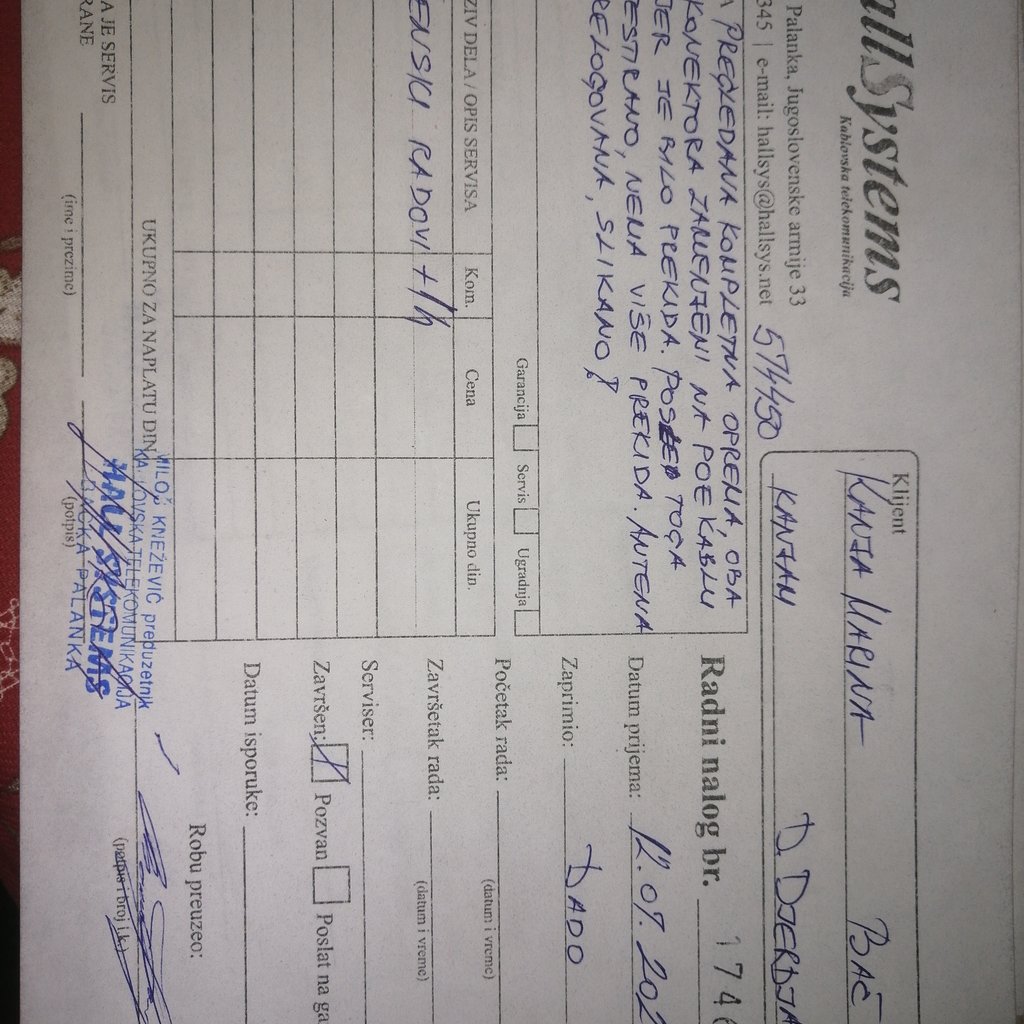 allSystems
Kablovska telekomunikacija
Palanka, Jugoslovenske armije 33
345 | e-mail: hallsys@hallsys.net
574450
Klijent
KANJA MARINA BAČ
KANJAM D. DJERDJA
PREGLEDANA KOMPLETNA OPREMA, OBA
KONEKTORA ZAMENJENI NA POE KABLU
JER JE BILO PREKIDA. POSLE TOGA
ESTIRANO, NEMA VIŠE PREKIDA. ANTENA
RELOGOVANA, SLIKANO!
Garancija Servis Ugradnja
Radni nalog br. 174
Datum prijema: 12.07.202
Zaprimio: DADO
Početak rada:
(datum i vreme)
Završetak rada:
(datum i vreme)
Serviser:
Završen: Pozvan Poslat na ga
Datum isporuke:
Robu preuzeo:
(potpis i broj i.k.)
ZIV DELA / OPIS SERVISA Kom. Cena Ukupno din.
ENSKI RADOVI + 1h
UKUPNO ZA NAPLATU DIN
A JE SERVIS
RANE
(ime i prezime)
(potpis)
MILOŠ KNEŽEVIĆ preduzetnik
KABLOVSKA TELEKOMUNIKACIJA
HALL SYSTEMS
BAČKA PALANKA